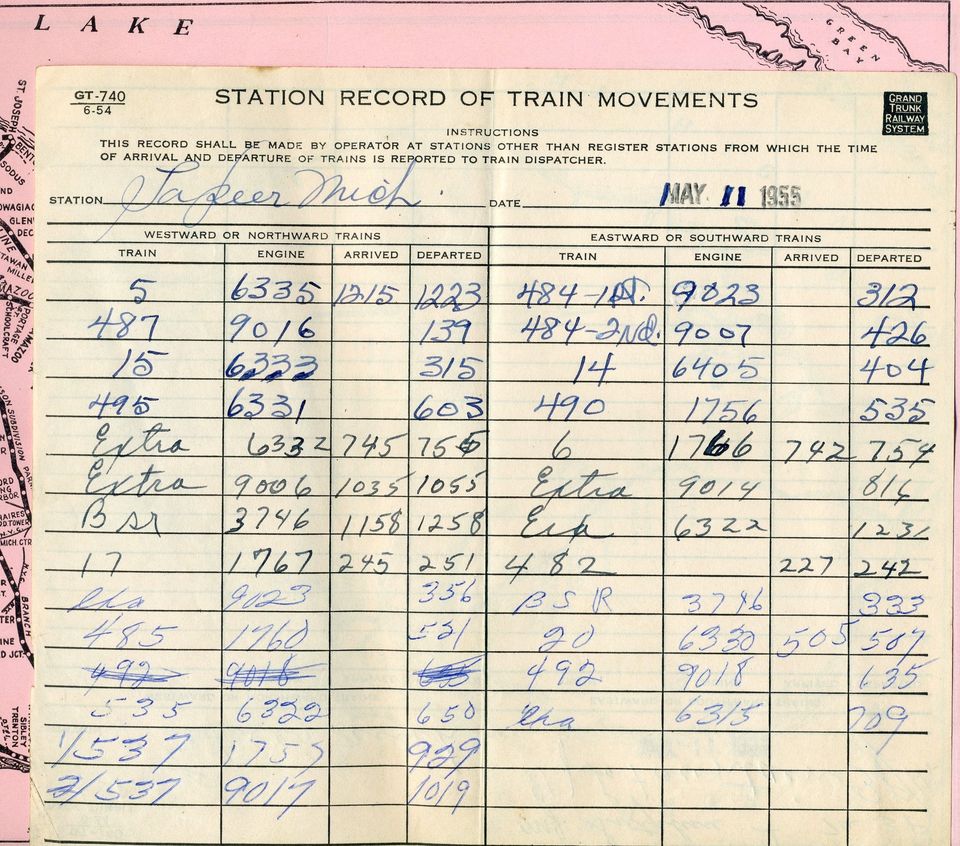 LAKE
GREEN BAY
GT-740
6-54
STATION RECORD OF TRAIN MOVEMENTS
GRAND TRUNK RAILWAY SYSTEM
INSTRUCTIONS
THIS RECORD SHALL BE MADE BY OPERATOR AT STATIONS OTHER THAN REGISTER STATIONS FROM WHICH THE TIME
OF ARRIVAL AND DEPARTURE OF TRAINS IS REPORTED TO TRAIN DISPATCHER.
STATION Lapeer Mich. DATE MAY 11 1955
WESTWARD OR NORTHWARD TRAINS EASTWARD OR SOUTHWARD TRAINS
TRAIN ENGINE ARRIVED DEPARTED TRAIN ENGINE ARRIVED DEPARTED
5 6335 1215 1223 484-1st. 9023 312
487 9016 139 484-2nd. 9007 426
15 6333 315 14 6405 404
495 6331 603 490 1756 535
Extra 6332 745 755 6 1766 742 754
Extra 9006 1035 1055 Extra 9014 816
BSR 3746 1158 1258 Exa 6322 1231
17 1767 245 251 482 227 242
exa 9023 356 BSR 3746 333
485 1760 521 20 6330 505 507
492 9018 635 492 9018 635
535 6322 650 exa 6315 709
1/537 1757 929
2/537 9017 1019